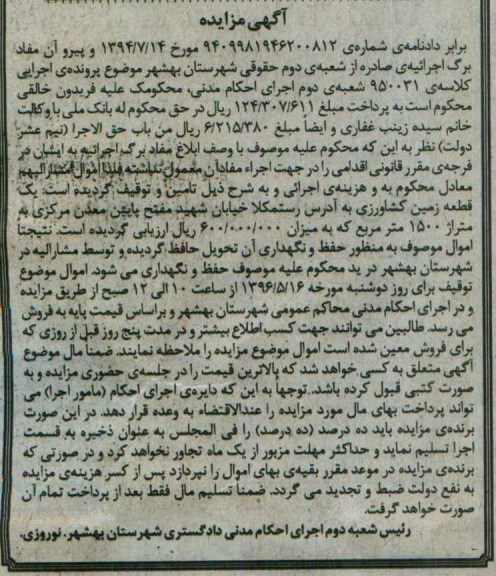 آگهی مزایده
برابر دادنامه‌ی شماره‌ی ۹۴۰۹۹۸۱۹۴۶۲۰۰۸۱۲ مورخ ۱۳۹۴/۷/۱۴ و پیرو آن مفاد
برگ اجرائیه‌ی صادره از شعبه‌ی دوم حقوقی شهرستان بهشهر موضوع پرونده‌ی اجرایی
کلاسه‌ی ۹۵۰۰۳۱ شعبه‌ی دوم اجرای احکام مدنی، محکومک علیه فریدون خالقی
محکوم است به پرداخت مبلغ ۱۲۴/۳۰۷/۶۱۱ ریال در حق محکوم له بانک ملی با وکالت
خانم سیده زینب غفاری و ایضاً مبلغ ۶/۲۱۵/۳۸۰ ریال من باب حق الاجرا (نیم عشر
دولت) نظر به این که محکوم علیه موصوف با وصف ابلاغ مفاد برگ اجرائیه به ایشان در
فرجه‌ی مقرر قانونی اقدامی را در جهت اجراء مفاد آن معمول نداشته فلذا اموال مشارالیهم
معادل محکوم به و هزینه‌ی اجرائی و به شرح ذیل تامین و توقیف گردیده است: یک
قطعه زمین کشاورزی به آدرس رستمکلا خیابان شهید مفتح پایین معدن مرکزی به
متراژ ۱۵۰۰ متر مربع که به میزان ۶۰۰/۰۰۰/۰۰۰ ریال ارزیابی گردیده است. نتیجتاً
اموال موصوف به منظور حفظ و نگهداری آن تحویل حافظ گردیده و توسط مشارالیه در
شهرستان بهشهر در ید محکوم علیه موصوف حفظ و نگهداری می شود. اموال موضوع
توقیف برای روز دوشنبه مورخه ۱۳۹۶/۵/۱۶ از ساعت ۱۰ الی ۱۲ صبح از طریق مزایده
و در اجرای احکام مدنی محاکم عمومی شهرستان بهشهر و براساس قیمت پایه به فروش
می رسد. طالبین می توانند جهت کسب اطلاع بیشتر و در مدت پنج روز قبل از روزی که
برای فروش معین شده است اموال موضوع مزایده را ملاحظه نمایند. ضمناً مال موضوع
آگهی متعلق به کسی خواهد شد که بالاترین قیمت را در جلسه‌ی حضوری مزایده و به
صورت کتبی قبول کرده باشد. توجهاً به این که دایره‌ی اجرای احکام (مامور اجرا) می
تواند پرداخت بهای مال مورد مزایده را عندالاقتضاء به وعده قرار دهد. در این صورت
برنده‌ی مزایده باید ده درصد (ده درصد) را فی المجلس به عنوان ذخیره به قسمت
اجرا تسلیم نماید و حداکثر مهلت مزبور از یک ماه تجاوز نخواهد کرد و در صورتی که
برنده‌ی مزایده در موعد مقرر بقیه‌ی بهای اموال را نپردازد پس از کسر هزینه‌ی مزایده
به نفع دولت ضبط و تجدید می گردد. ضمناً تسلیم مال فقط بعد از پرداخت تمام آن
صورت خواهد گرفت.
رئیس شعبه دوم اجرای احکام مدنی دادگستری شهرستان بهشهر. نوروزی.